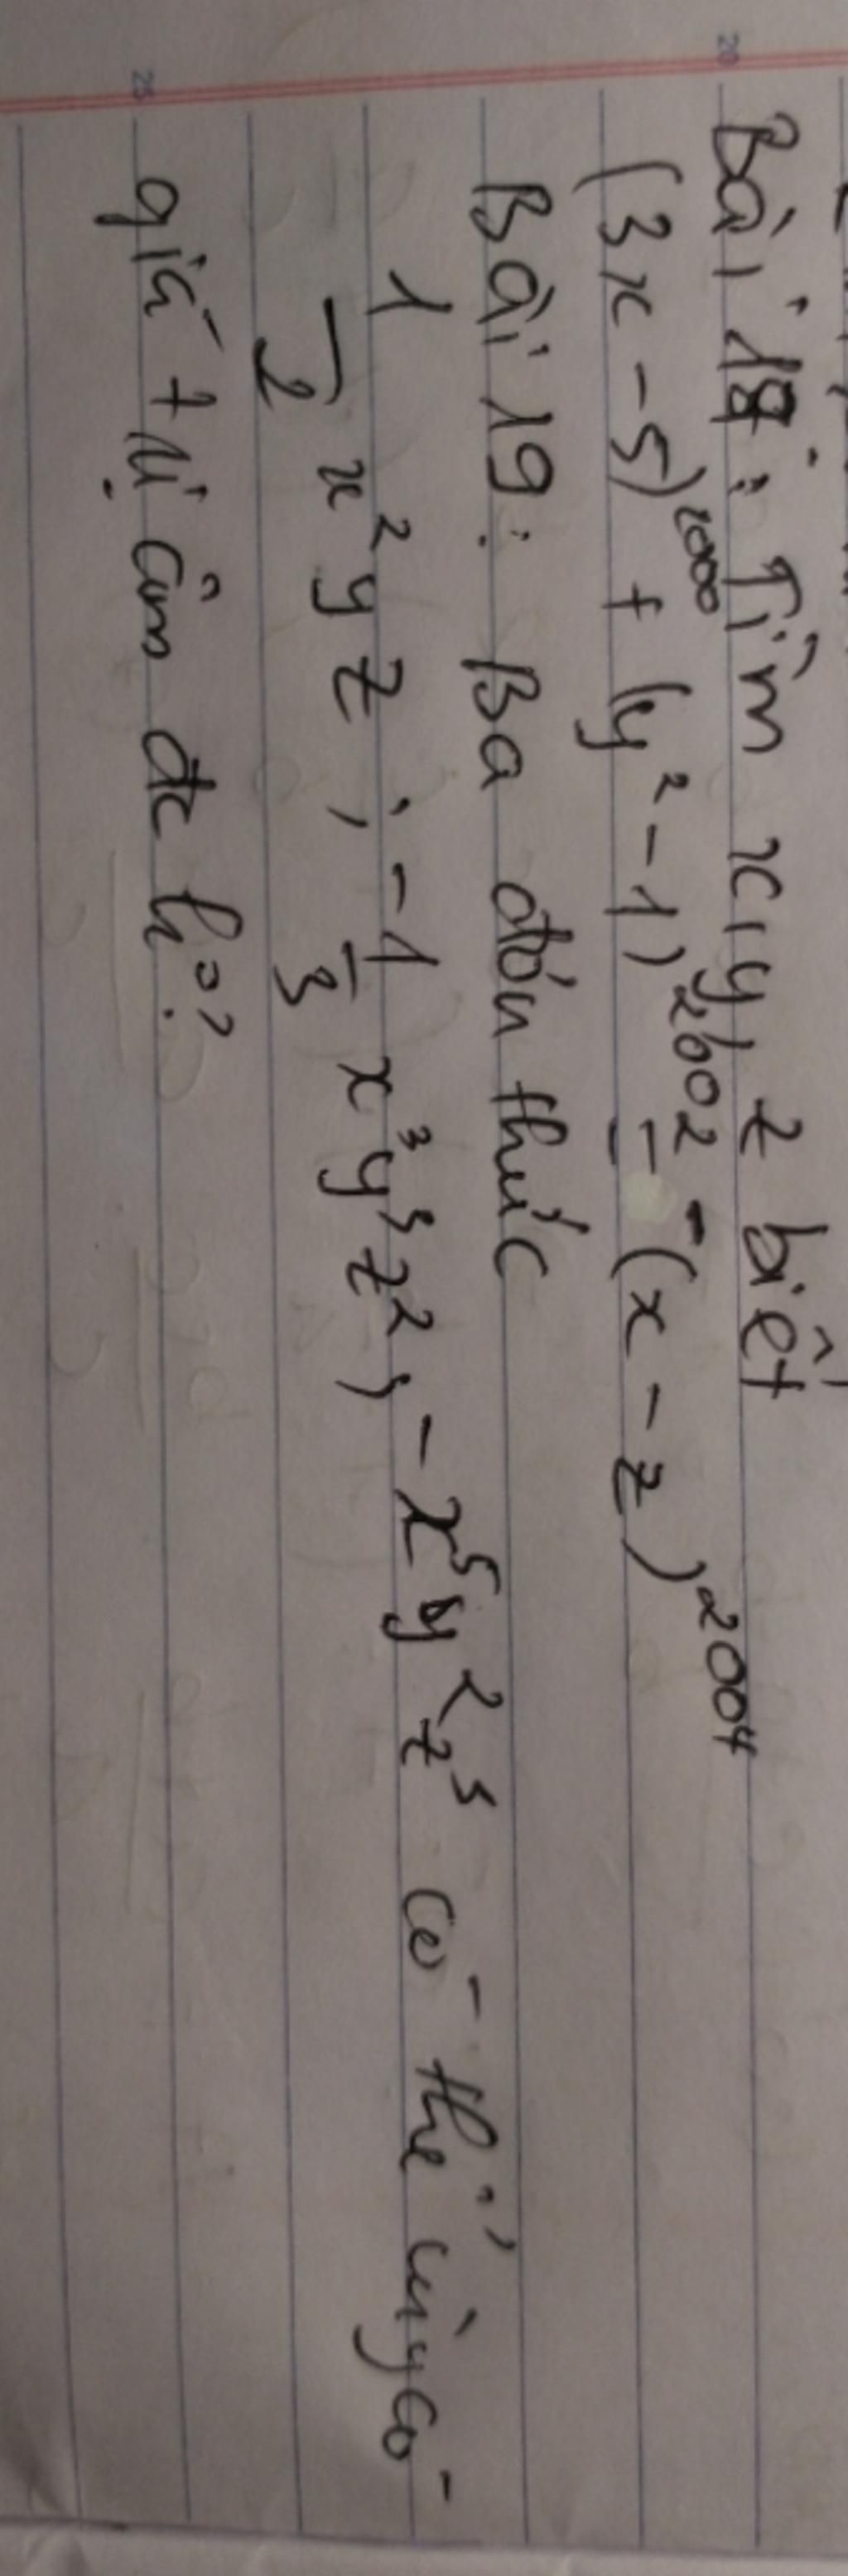 Bài 18: Tìm x, y, z biết
(3x - 5)²⁰⁰⁰ + (y² - 1)²⁰⁰² = -(x - z)²⁰⁰⁴
Bài 19: Ba đơn thức
1/2 x²yz ; -1/3 x³y³z² ; -x⁵y²z³ có thể cùng có
giá trị âm đc k°?
20
25